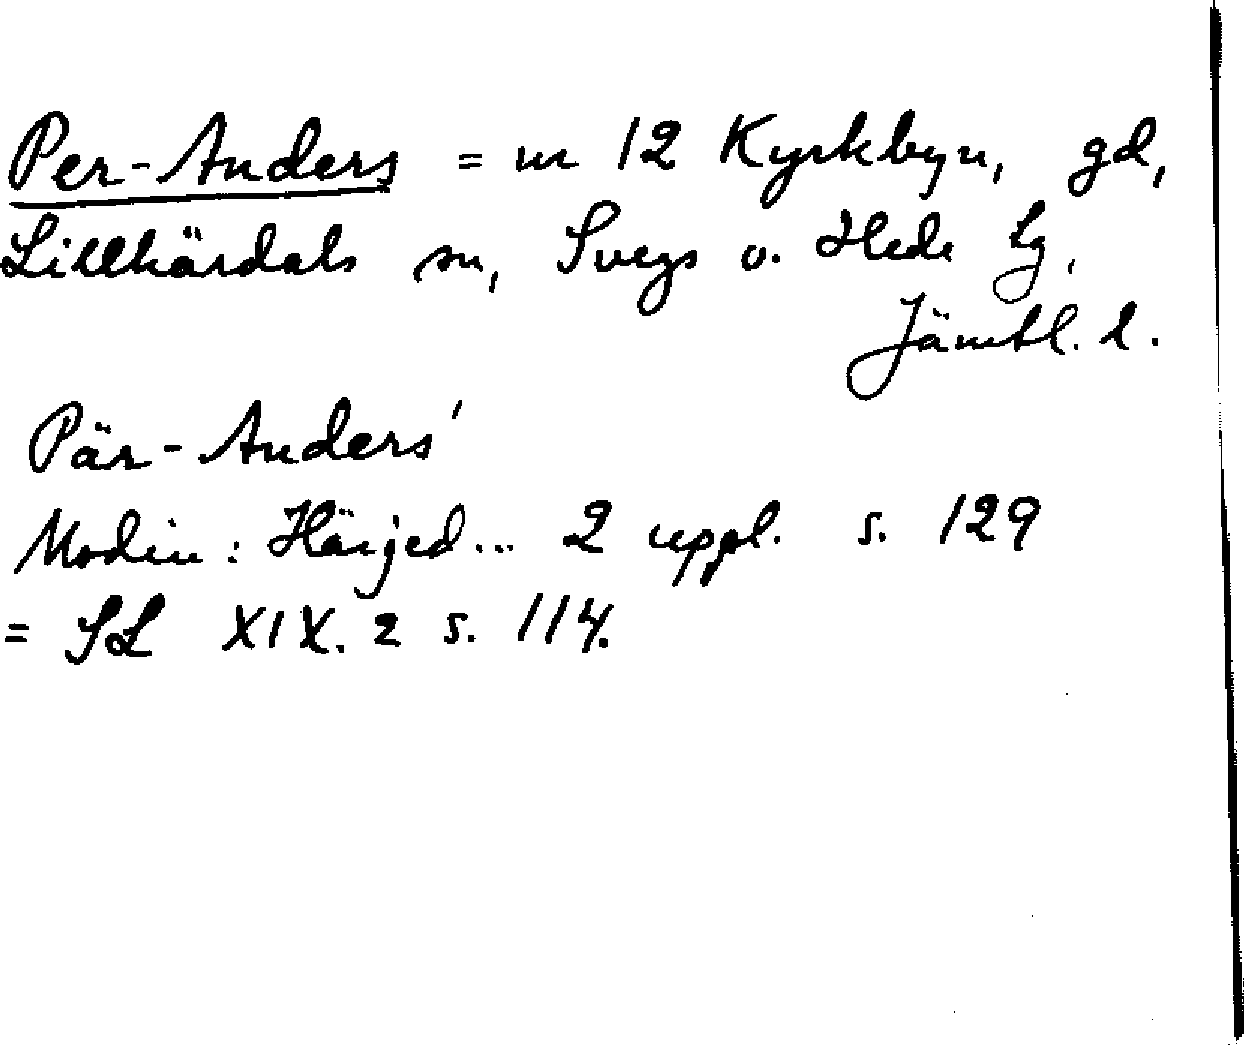 Per-Anders = nr 12 Kyrkbyn, gd,
Lillhärdals sn, Svegs o. Hede tg,
Jämtl. l.
Pär-Anders'
Modin: Härjed... 2 uppl. s. 129
= SL XIX. 2 s. 114.